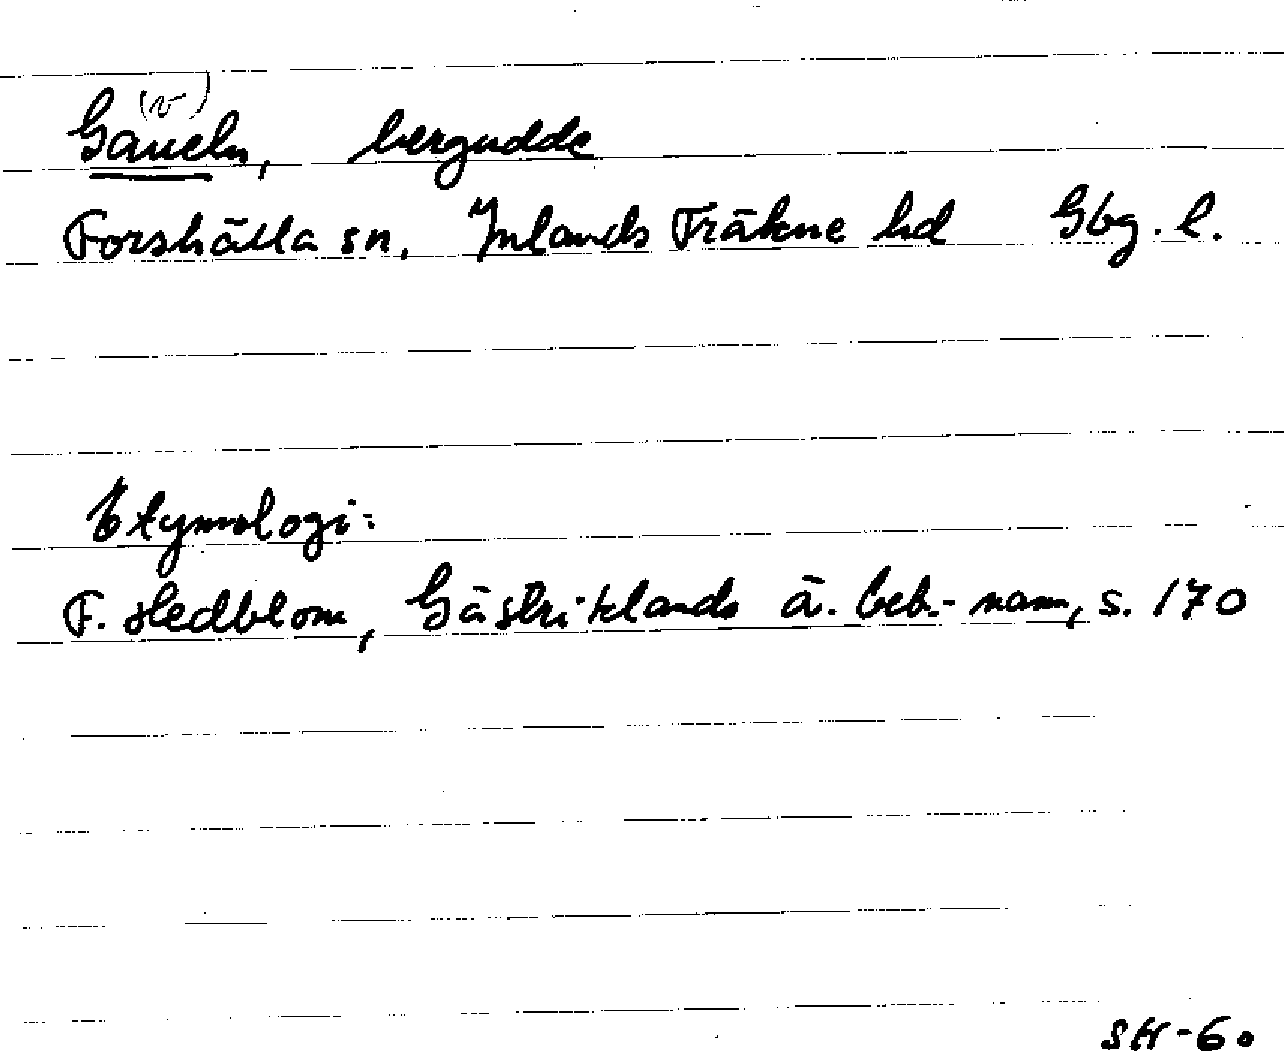 (v)
Gaueln, bergudde
Forshälla sn, Inlands Fräkne hd Gbg. l.
Etymologi:
F. Hedblom, Gästriklands ä. beb.-namn, s. 170
SH-60